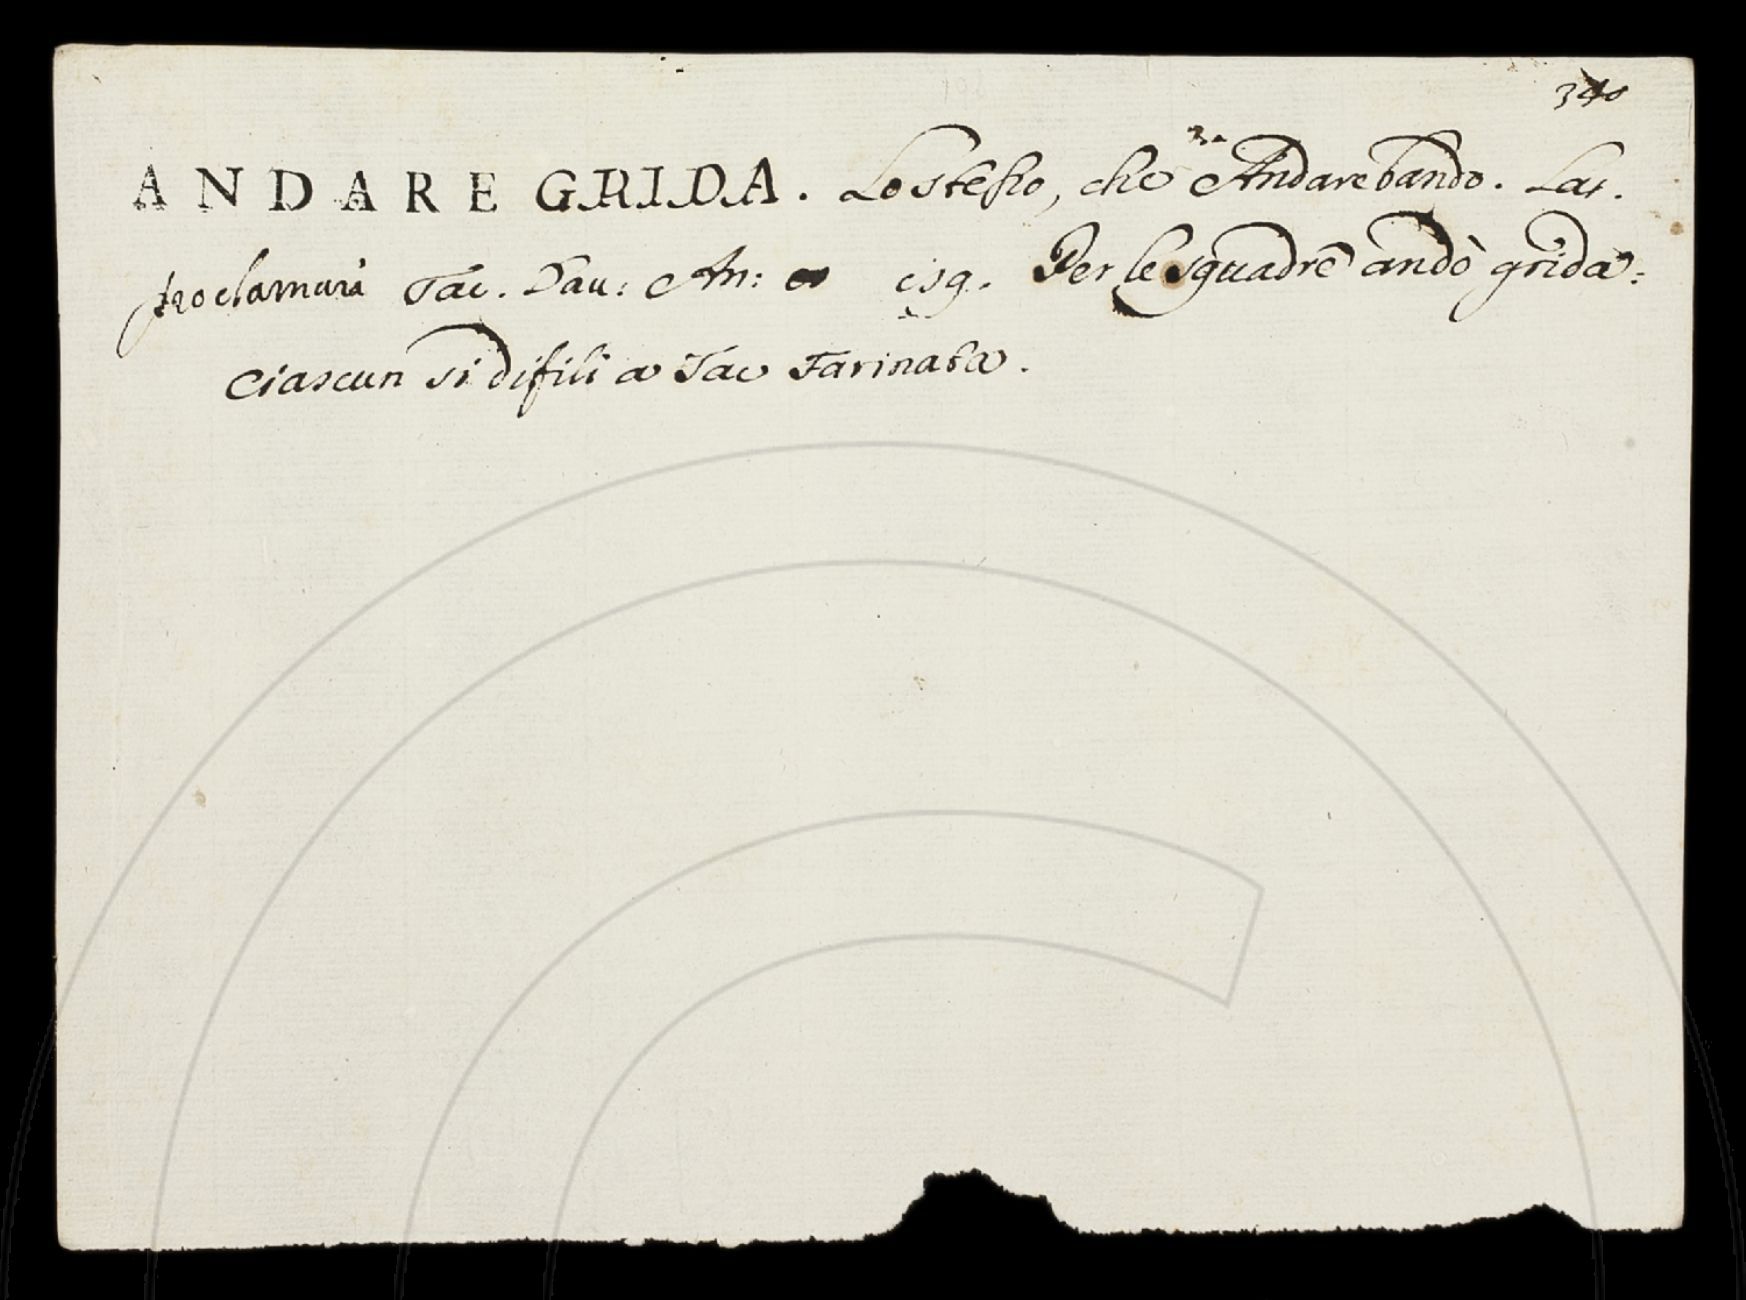 340
ANDARE GRIDA. Lo stesso, che Andare bando. Lat.
proclamari Tac. Dau: An: isg. Per le squadre andò grida:
Ciascun si difili a Tac Farinata.